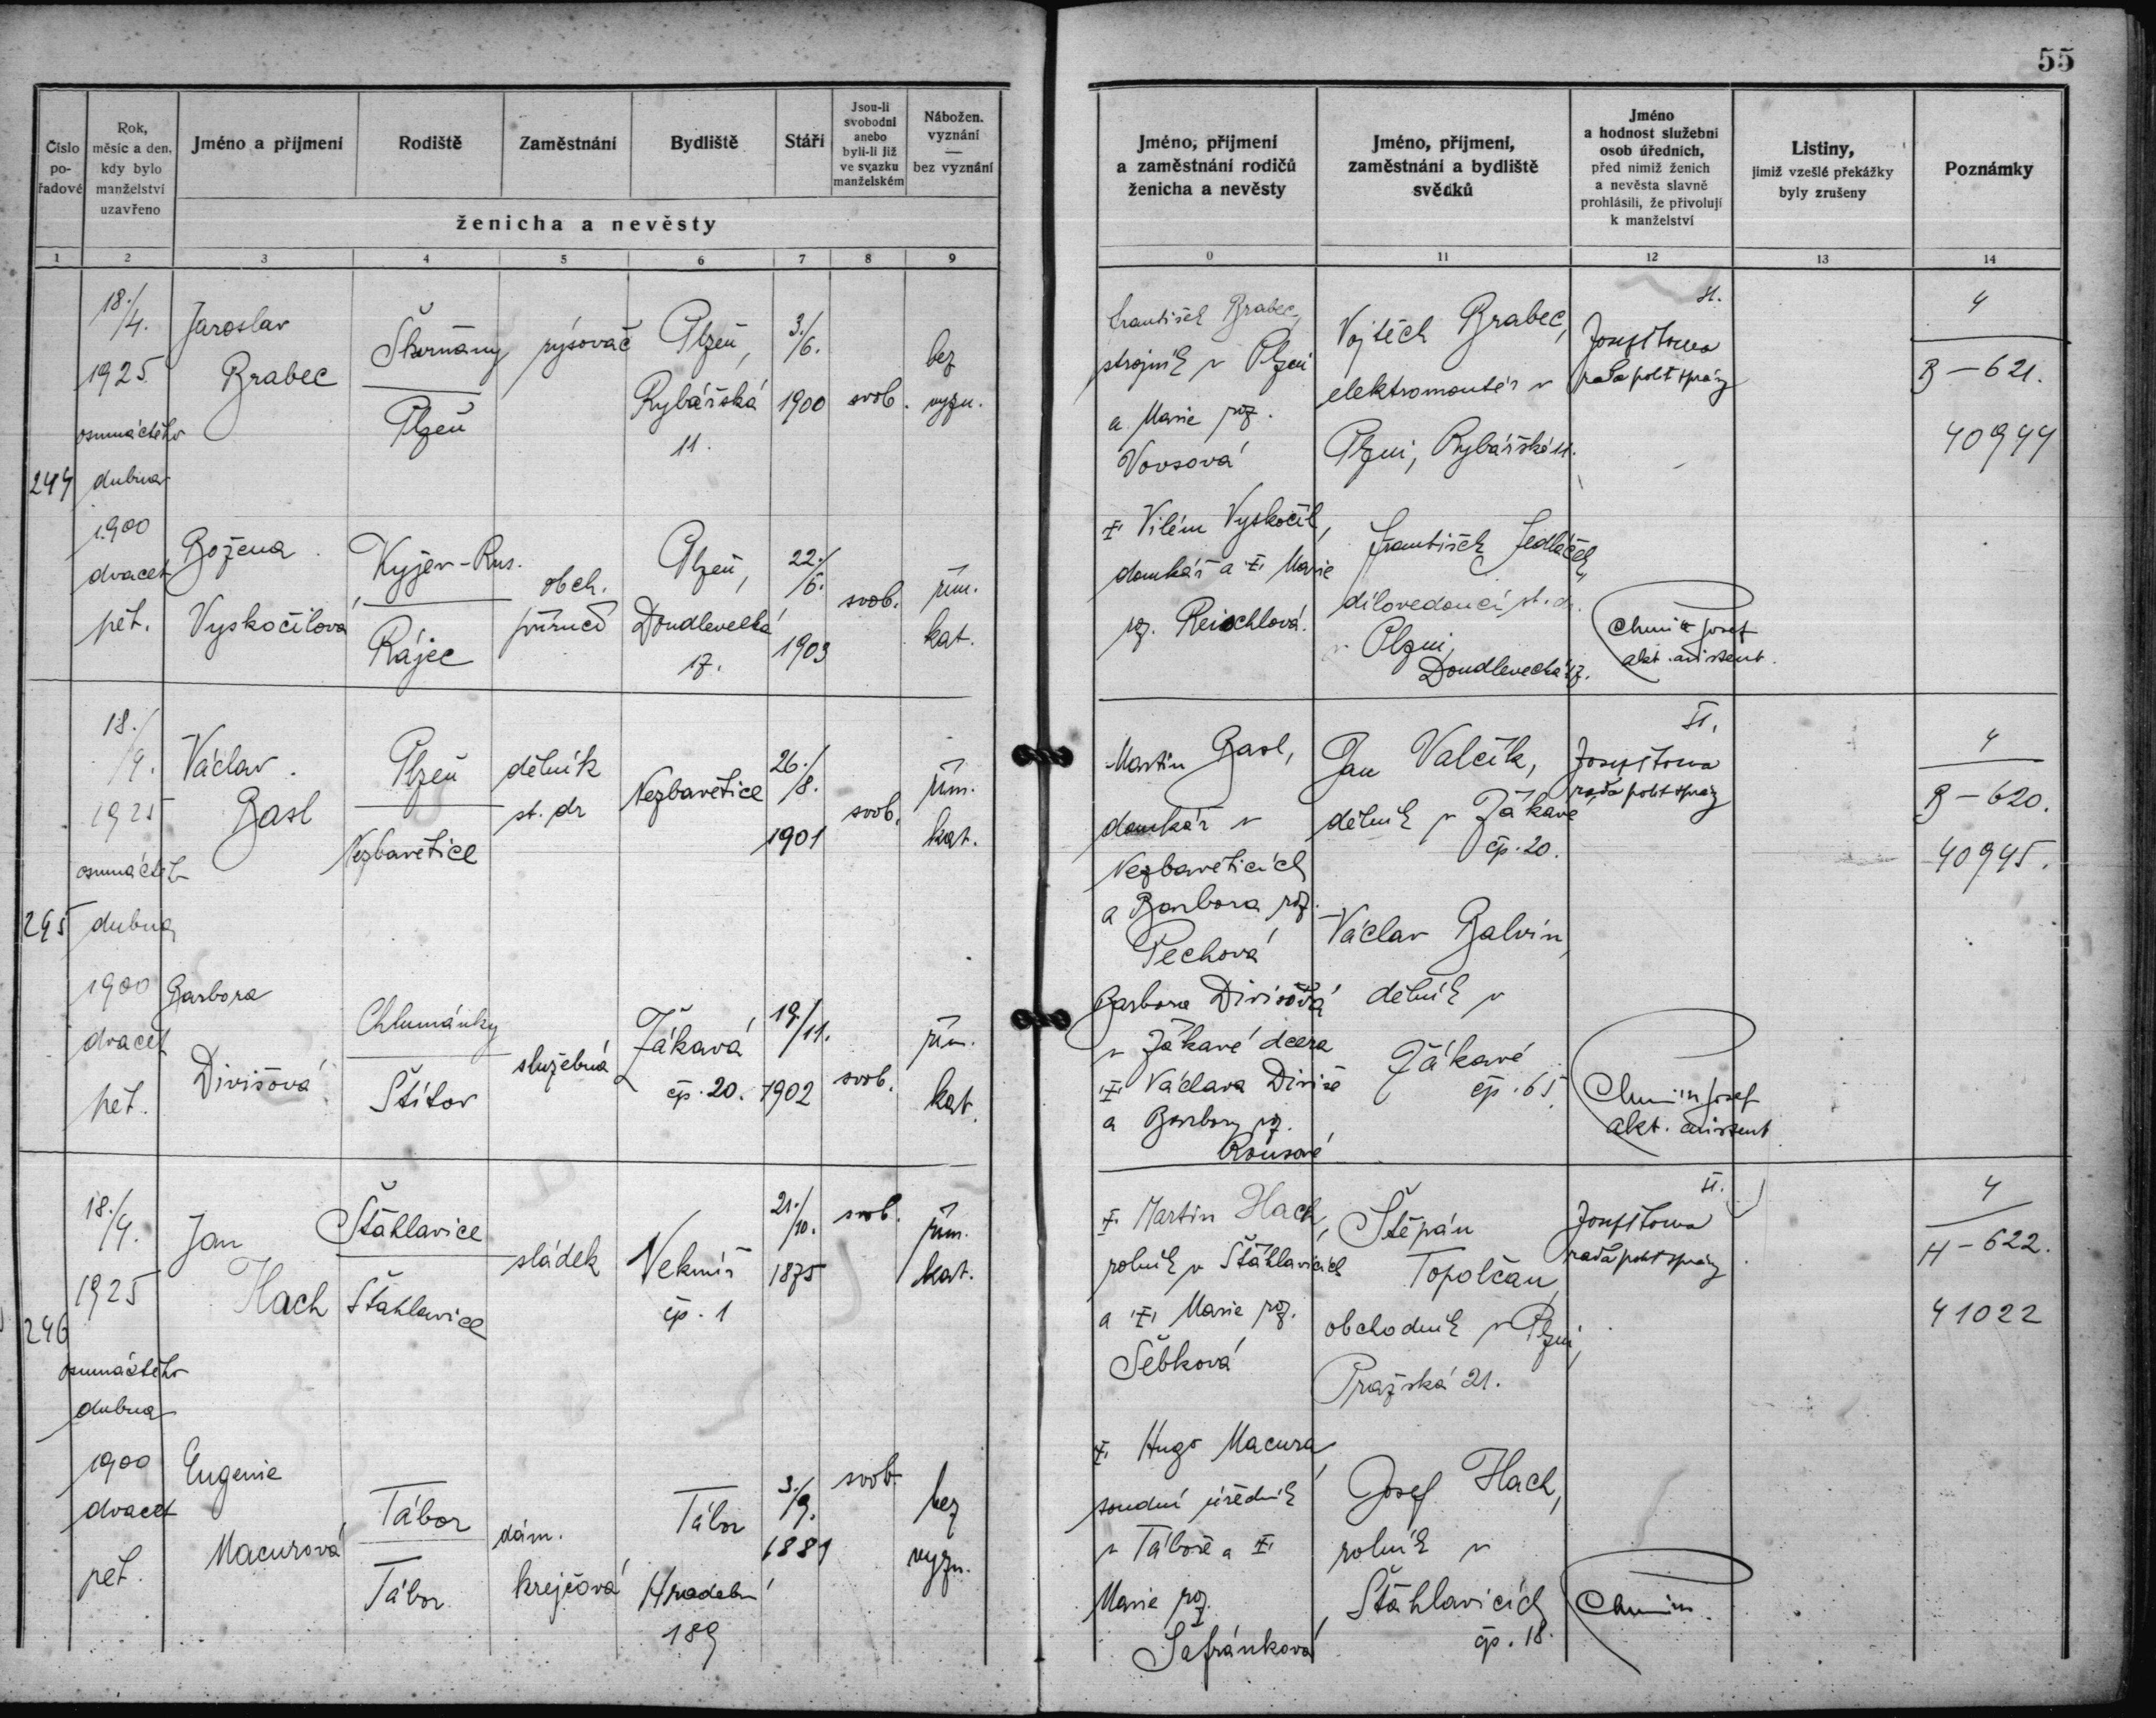 55
Číslo
po-
řadové
Rok,
měsíc a den,
kdy bylo
manželství
uzavřeno
Jméno a příjmení
Rodiště
Zaměstnání
Bydliště
Stáří
Jsou-li
svobodni
anebo
byli-li již
ve svazku
manželském
Nábožen.
vyznání
—
bez vyznání
ženicha a nevěsty
1 2 3 4 5 6 7 8 9
Jméno, příjmení
a zaměstnání rodičů
ženicha a nevěsty
Jméno, příjmení,
zaměstnání a bydliště
svědků
Jméno
a hodnost služební
osob úředních,
před nimiž ženich
a nevěsta slavně
prohlásili, že přivolují
k manželství
Listiny,
jimiž vzešlé překážky
byly zrušeny
Poznámky
0 11 12 13 14
244
18./
4.
1925
osmnáctého
dubna
1900
dvacet
pět.
Jaroslav
Brabec
Škvrňany
Plzeň
rýsovač
Plzeň,
Rybářská
11.
3./
6.
1900
svob.
bez
vyzn.
Božena
Vyskočilová
Kyjev-Rus.
Rájec
obch.
příručí
Plzeň,
Doudlevecká
17.
22./
6.
1903
svob.
řím.
kat.
František Brabec,
strojník v Plzni
a Marie roz.
Vovsová
Vilém Vyskočil,
domkář a Marie
roz. Reischlová.
Vojtěch Brabec,
elektromontér v
Plzni, Rybářská 11.
František Jedláček,
dílovedoucí st. dr.
v Plzni,
Doudlevecká 17.
II.
Josef Touša
rada polit správy
Chmin Josef
akt. asistent.
4
B-621.
40944
245
18./
4.
1925
osmnáctého
dubna
1900
dvacet
pět.
Václav
Basl
Plzeň
Nezbavětice
dělník
st. dr
Nezbavětice
26./
8.
1901
svob.
řím.
kat.
Barbora
Divišová
Chlumánky
Štítov
služebná
Žákavá
čp. 20.
19./
11.
1902
svob.
řím.
kat.
Martin Basl,
domkář v
Nezbavěticích
a Barbora roz.
Pechová
Barbora Divišová
v Žákavé dcera
Václava Diviše
a Barbory roz.
Rousové
Jan Valčík,
dělník v Žákavé
čp. 20.
Václav Balvín,
dělník v
Žákavé
čp. 65.
II.
Josef Touša
rada polit správy
Chmin Josef
akt. asistent
4
B-620.
40945.
246
18./
4.
1925
osmnáctého
dubna
1900
dvacet
pět.
Jan
Hach
Štáhlavice
Štáhlavice
sládek
Nekmíř
čp. 1
21./
10.
1875
svob.
řím.
kat.
Eugenie
Macurová
Tábor
Tábor
dám.
krejčová
Tábor
Hradební
189
3./
9.
1881
svob.
bez
vyzn.
Martin Hach,
rolník v Štáhlavicích
a Marie roz.
Šebková
Hugo Macura,
soudní úředník
v Táboře a
Marie roz.
Šafránková
Štěpán
Topolčan,
obchodník v Plzni,
Pražská 21.
Josef Hach,
rolník v
Štáhlavicích
čp. 18.
II.
Josef Touša
rada polit správy
Chmin.
4
H-622.
41022